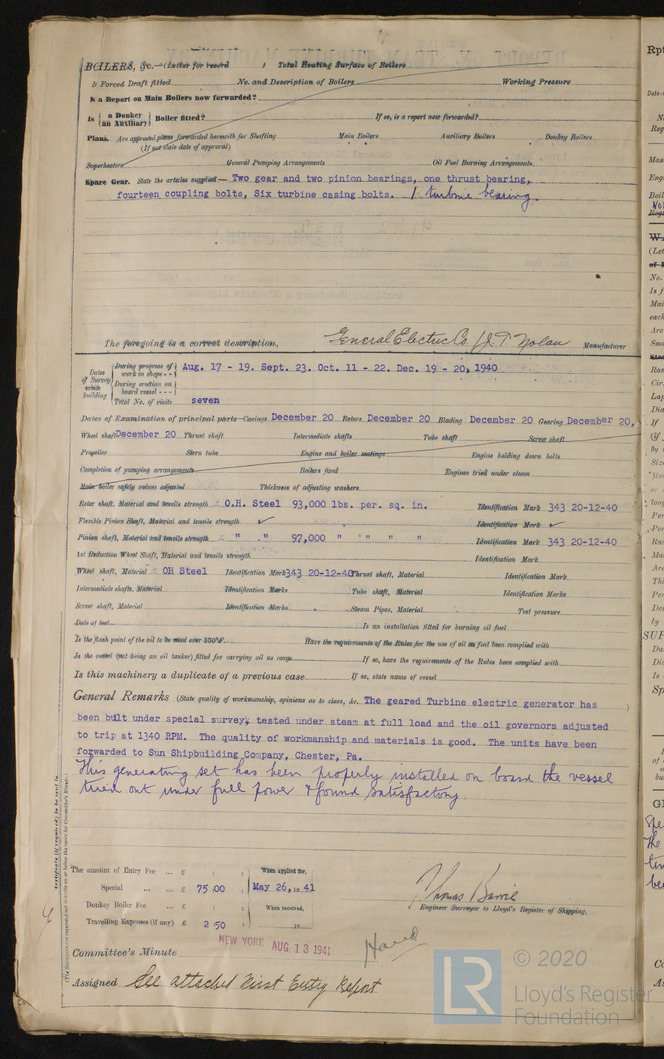 BOILERS, &c.—(Letter for record ) Total Heating Surface of Boilers
Is Forced Draft fitted No. and Description of Boilers Working Pressure
Is a Report on Main Boilers now forwarded?
Is {a Donkey / an Auxiliary} Boiler fitted? If so, is a report now forwarded?
Plans. Are approved plans forwarded herewith for Shafting Main Boilers Auxiliary Boilers Donkey Boilers
(If not state date of approval)
Superheaters General Pumping Arrangements Oil Fuel Burning Arrangements
Spare Gear. State the articles supplied:— Two gear and two pinion bearings, one thrust bearing,
fourteen coupling bolts, Six turbine casing bolts. 1 turbine bearing.
The foregoing is a correct description, General Electric Co. J. T. Nolan Manufacturer
Dates of Survey while building
During progress of work in shops - - Aug. 17 - 19. Sept. 23. Oct. 11 - 22. Dec. 19 - 20, 1940
During erection on board vessel - - -
Total No. of visits seven
Dates of Examination of principal parts—Casings December 20 Rotors December 20 Blading December 20 Gearing December 20,
Wheel shaft December 20 Thrust shaft Intermediate shafts Tube shaft Screw shaft
Propeller Stern tube Engine and boiler seatings Engine holding down bolts
Completion of pumping arrangements Boilers fixed Engines tried under steam
Main boiler safety valves adjusted Thickness of adjusting washers
Rotor shaft, Material and tensile strength O.H. Steel 93,000 lbs. per. sq. in. Identification Mark 343 20-12-40
Flexible Pinion Shaft, Material and tensile strength ✓ Identification Mark ✓
Pinion shaft, Material and tensile strength " ." 97,000 " " " " Identification Mark 343 20-12-40
1st Reduction Wheel Shaft, Material and tensile strength Identification Mark
Wheel shaft, Material OH Steel Identification Mark 343 20-12-40 Thrust shaft, Material Identification Mark
Intermediate shafts, Material Identification Marks Tube shaft, Material Identification Marks
Screw shaft, Material Identification Marks Steam Pipes, Material Test pressure
Date of test Is an installation fitted for burning oil fuel
Is the flash point of the oil to be used over 150°F. Have the requirements of the Rules for the use of oil as fuel been complied with
Is the vessel (not being an oil tanker) fitted for carrying oil as cargo If so, have the requirements of the Rules been complied with
Is this machinery a duplicate of a previous case If so, state name of vessel
General Remarks (State quality of workmanship, opinions as to class, &c. The geared Turbine electric generator has
been built under special survey, tested under steam at full load and the oil governors adjusted
to trip at 1340 RPM. The quality of workmanship and materials is good. The units have been
forwarded to Sun Shipbuilding Company, Chester, Pa.
This generating set has been properly installed on board the vessel
tried out under full power & found satisfactory.
The amount of Entry Fee ... £ : : When applied for,
Special ... ... £ 75.00 : May 26, 1941
Donkey Boiler Fee ... £ : : When received,
Travelling Expenses (if any) £ 2.50 : 19
Thomas Barrie
Engineer Surveyor to Lloyd's Register of Shipping.
NEW YORK AUG 13 1941
Committee's Minute
Assigned See attached First Entry Report
© 2020
Lloyd's Register
Foundation